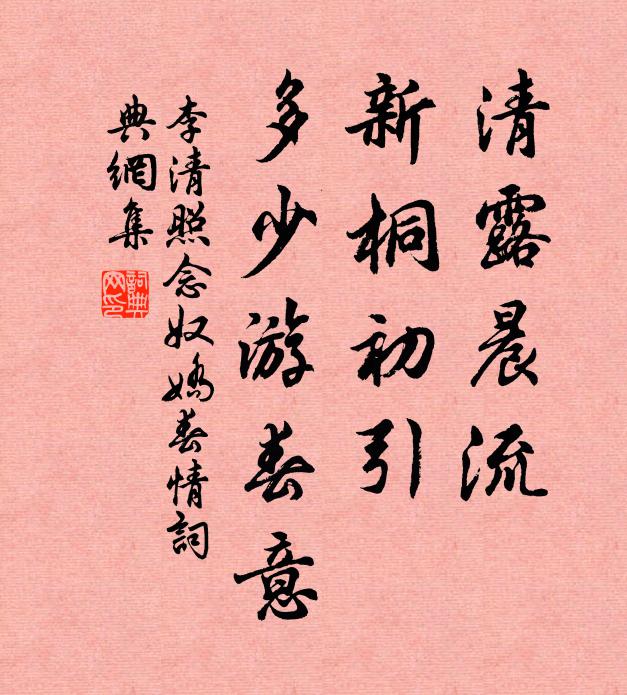 清露晨流
新桐初引
多少游春意
李清照念奴嬌春情詞
典網集
詞典網印